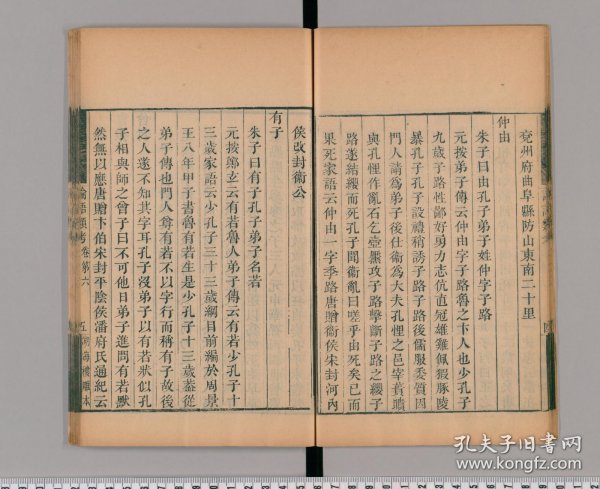 兗州府曲阜縣防山東南二十里
仲由
朱子曰由孔子弟子姓仲字子路
元按弟子傳云仲由字子路魯之卞人也少孔子
九歲子路性鄙好勇力志伉直冠雄雞佩猳豚陵
暴孔子孔子設禮稍誘子路子路後儒服委質因
門人請為弟子後仕衞為大夫孔悝之邑宰蕢聵
與孔悝作亂石乞壺黶攻子路擊斷子路之纓子
路遂結纓而死孔子聞衞亂曰嗟乎由死矣已而
果死家語云仲由一字季路唐贈衞侯宋封河內
侯改封衞公
有子
朱子曰有子孔子弟子名若
元按鄭玄云有若魯人弟子傳云有若少孔子十
三歲家語云少孔子三十三歲綱目前編於周景
王八年甲子書魯有若生是少孔子十三歲蓋從
弟子傳也門人尊有若不以字行而稱有子故後
之人遂不知其字耳孔子沒弟子以有若狀似孔
子相與師之曾子曰不可他日弟子進問有若默
然無以應唐贈卞伯宋封平陰侯潘府氏通紀云
論語類考 卷第六
五 湖海樓雕本
孔夫子旧书网
www.kongfz.com